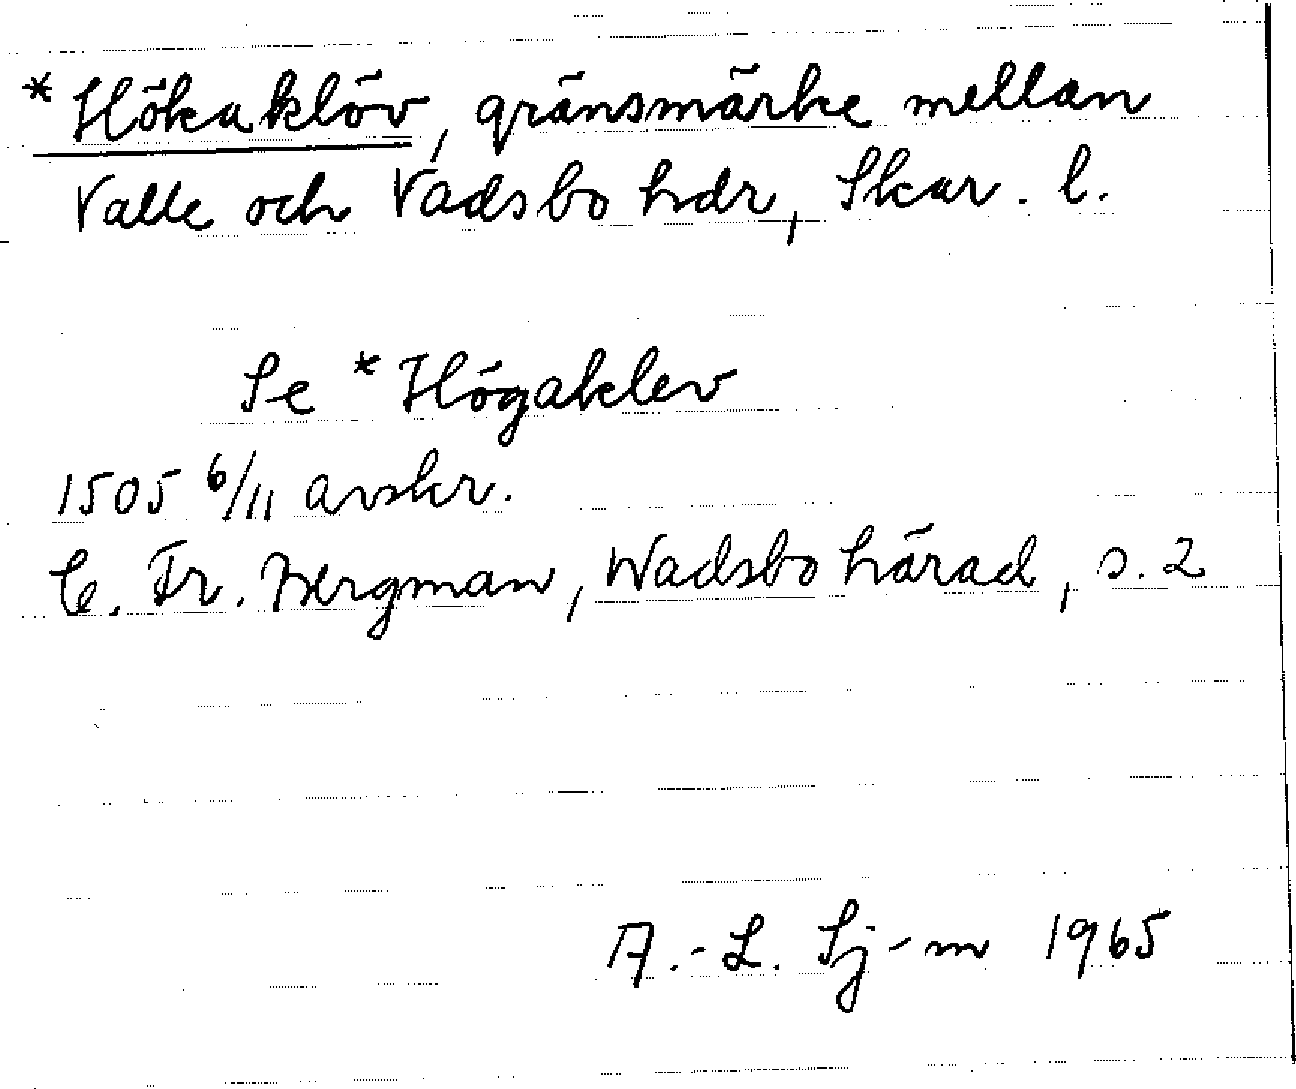 * Hökaklöv, gränsmärke mellan
Valle och Vadsbo hdr, Skar. l.
Se * Högaklev
1505 6/11 avskr.
C. Fr. Bergman, Wadsbo härad, s. 2
A.-L. Sj-m 1965